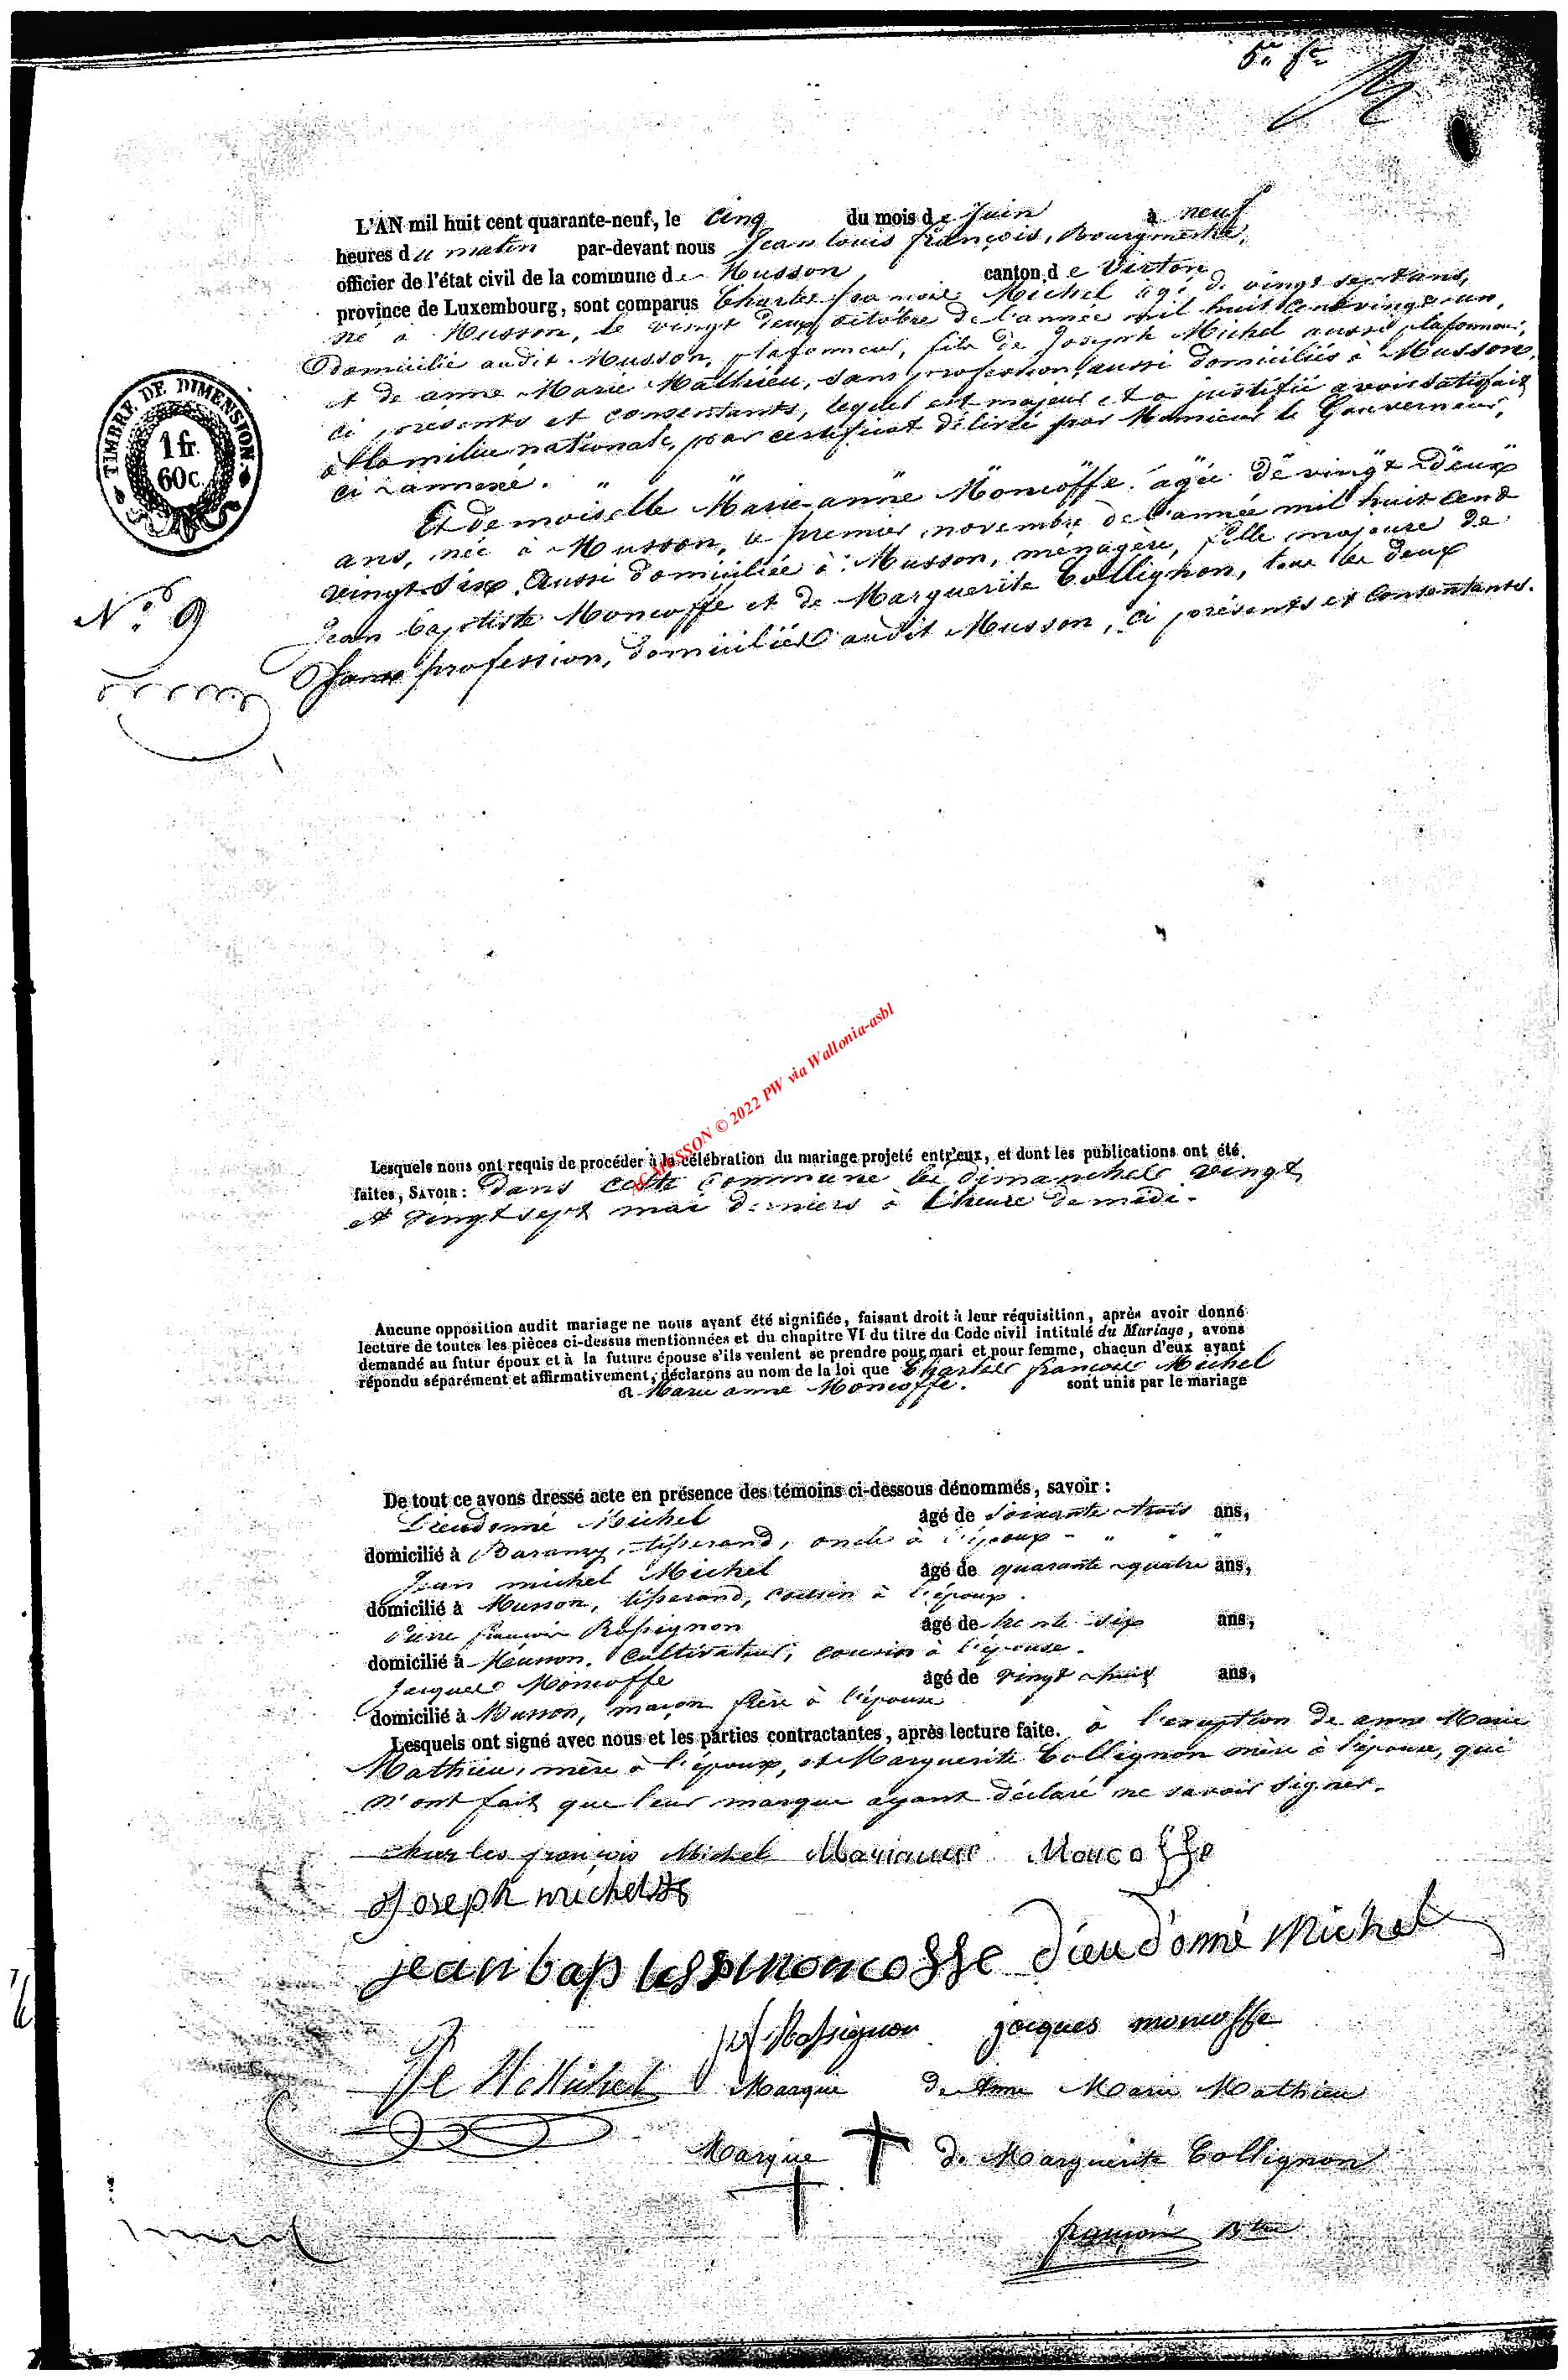 5me fle
L'AN mil huit cent quarante-neuf, le cinq du mois de Juin à neuf
heures du matin par-devant nous Jean louis françois, Bourgmestre,
officier de l'état civil de la commune de Musson canton de Virton
province de Luxembourg, sont comparus Charles francois Michel agé de vingt sept ans,
né à Musson, le vingt deux octobre de l'année mil huit cent vingt un,
domicilié audit Musson, plafonneur, fils de Joseph Michel aussi plafonneur,
et de anne Marie Mathieu, sans profession, aussi domiciliés à Musson,
ci présents et consentants, lequel est majeur et a justifié avoir satisfait
à la milice nationale, par certificat délivré par Monsieur le Gouverneur,
ci-annexé. " " " " " "
Et demoiselle Marie-anne Moncoffe agée de vingt-deux
ans, née à Musson, le premier novembre de l'année mil huit cent
vingt-six, aussi domiciliée à Musson, ménagère, fille majeure de
Jean baptiste Moncoffe et de Marguerite Collignon, tous les deux
sans profession, domiciliés audit Musson, ci présents et consentants.
TIMBRE DE DIMENSION.
1 fr.
60 c.
N° 9
Lesquels nous ont requis de procéder à la célébration du mariage projeté entr'eux, et dont les publications ont été
faites, SAVOIR: dans cette commune les dimanches vingt
et vingt sept mai derniers à l'heure de midi.
MUSSON © 2022 PW via Wallonia-asbl
Aucune opposition audit mariage ne nous ayant été signifiée, faisant droit à leur réquisition, après avoir donné
lecture de toutes les pièces ci-dessus mentionnées et du chapitre VI du titre du Code civil intitulé du Mariage, avons
demandé au futur époux et à la future épouse s'ils veulent se prendre pour mari et pour femme, chacun d'eux ayant
répondu séparément et affirmativement, déclarons au nom de la loi que Charles francois Michel
et Marie anne Moncoffe. sont unis par le mariage
De tout ce avons dressé acte en présence des témoins ci-dessous dénommés, savoir :
Dieudonné Michel âgé de soixante trois ans,
domicilié à Baranzy, tisserand, oncle à l'époux - " " "
Jean michel Michel âgé de quarante-quatre ans,
domicilié à Musson, tisserand, cousin à l'époux.
Pierre françois Rossignon âgé de trente six ans,
domicilié à Musson. Cultivateur, cousin à l'épouse.
Jacques Moncoffe âgé de vingt-huit ans,
domicilié à Musson, maçon frère à l'épouse
Lesquels ont signé avec nous et les parties contractantes, après lecture faite. à l'exception de anne Marie
Mathieu, mère à l'époux, et Marguerite Collignon mère à l'épouse, qui
n'ont fait que leur marque ayant déclaré ne savoir signer.
charles françois Michel Marianne Moncoffe
Joseph michel
jean baptiste moncoffe dieudonné Michel
pf Rossignon jacques moncoffe
Je M Michel Marque de Anne Marie Mathieu
Marque de Marguerite Collignon
françois Btre